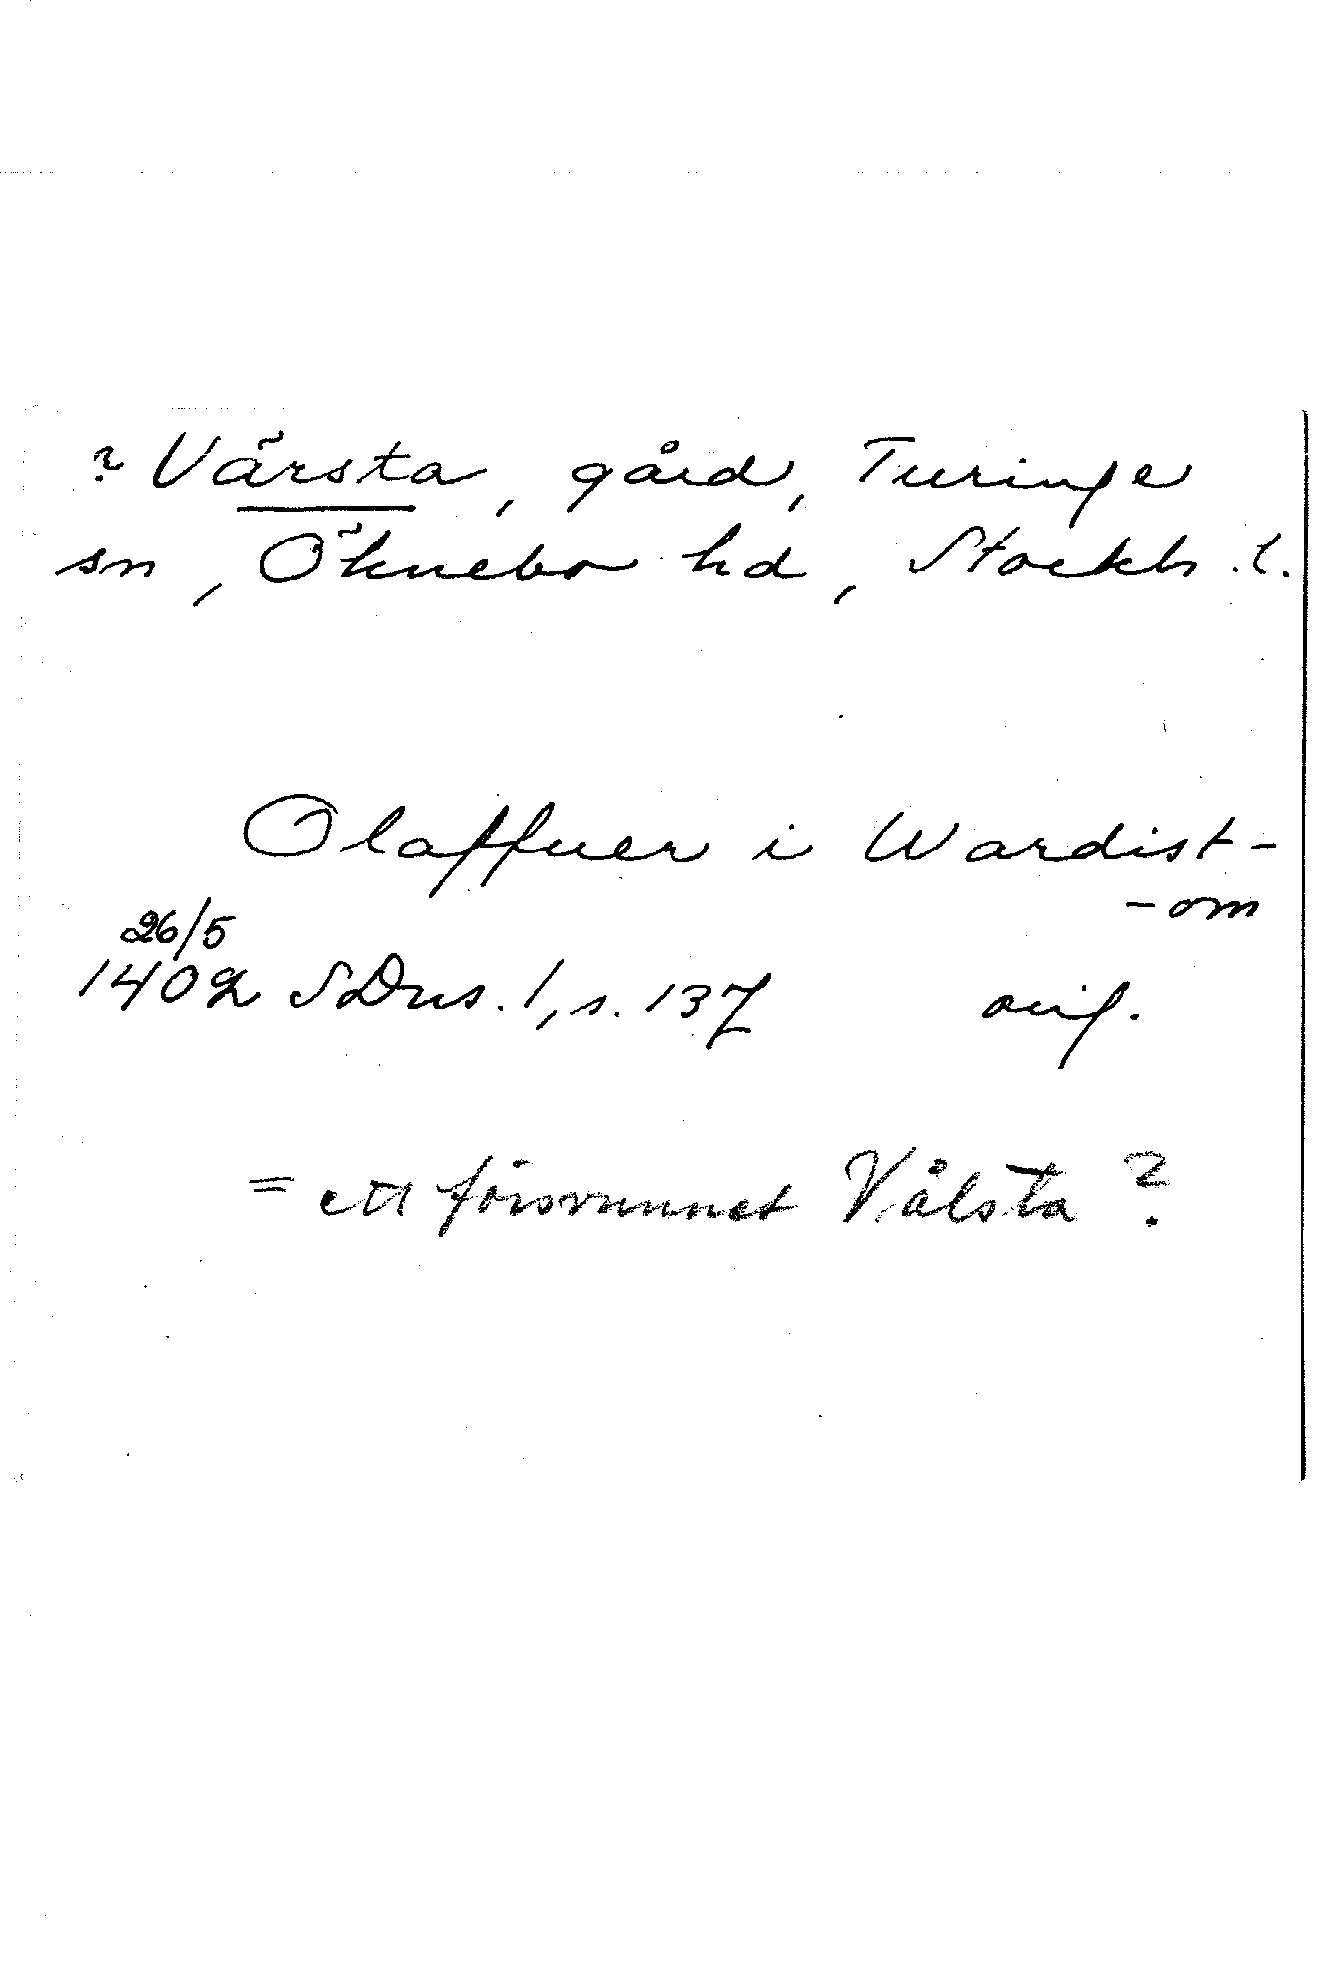 ? Värsta, gård, Turinge
sn, Öknebo hd, Stockh. l.
Olaffuer i Wardist-
-om
26/5
1402 SDns. 1, s. 137 orig.
= ett försvunnet Vålsta?